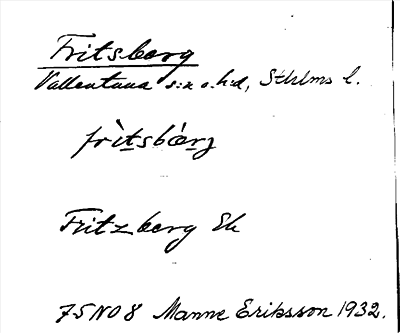 Fritsberg
Vallentuna s:n o. h:d, Sthlms l.
frìtsbærj
Fritzberg Ek
75NO8 Manne Eriksson 1932.